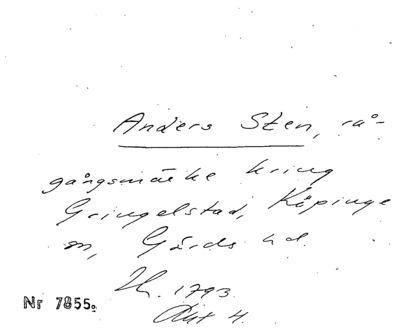 Anders Sten, rå-
gångsmärke kring
Gringelstad, Köpinge
sn, Gärds hd.
1793.
Akt 4.
Nr 7855